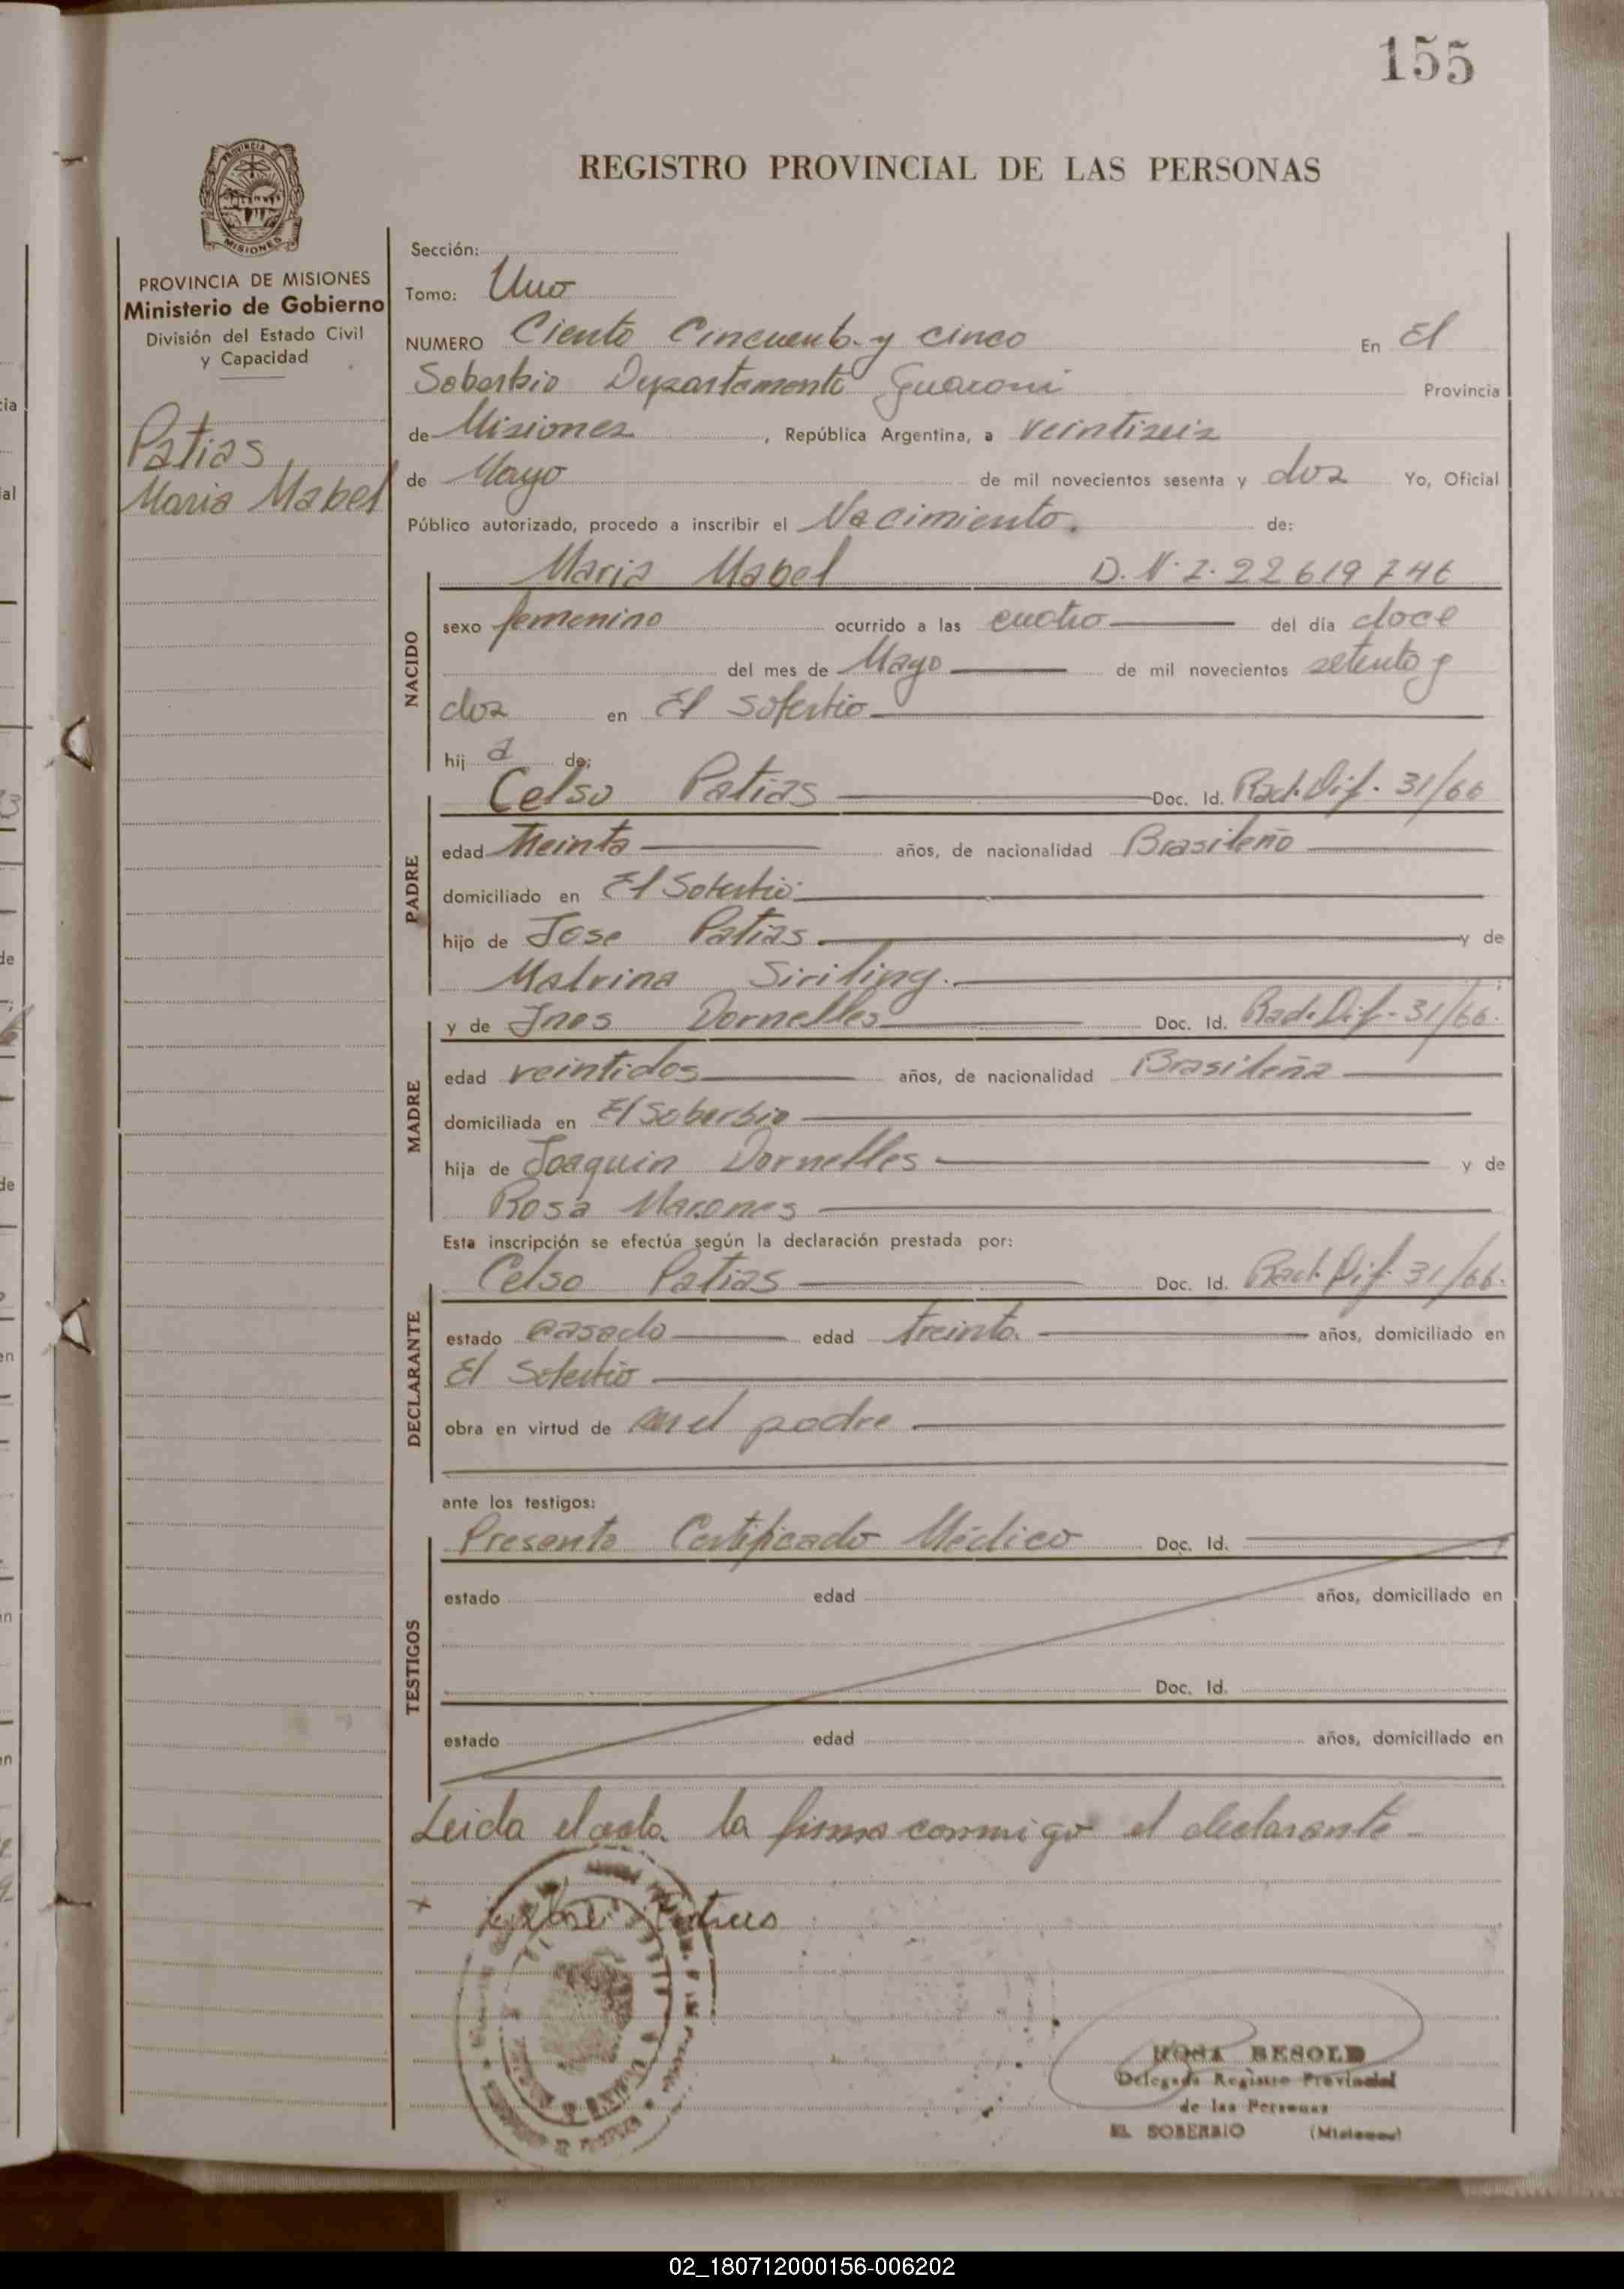 155
PROVINCIA DE
MISIONES
REGISTRO PROVINCIAL DE LAS PERSONAS
PROVINCIA DE MISIONES
Ministerio de Gobierno
División del Estado Civil
y Capacidad
Patias,
Maria Mabel
Sección:
Tomo: Uno
NUMERO Ciento Cincuenta y cinco En El
Soberbio Departamento Guarani Provincia
de Misiones, República Argentina, a veintiseis
de Mayo de mil novecientos sesenta y dos Yo, Oficial
Público autorizado, procedo a inscribir el Nacimiento. de:
NACIDO
Maria Mabel D.N.I. 22619746
sexo femenino ocurrido a las cuatro del día doce
del mes de Mayo de mil novecientos setenta y
dos en El Soberbio
hij a de:
PADRE
Celso Patias Doc. Id. Rad. Dif. 31/66
edad treinta años, de nacionalidad Brasileño
domiciliado en El Soberbio
hijo de Jose Patias y de
Malvina Siriling.
MADRE
y de Ines Dornelles Doc. Id. Rad. Dif. 31/66.
edad veintidos años, de nacionalidad Brasileña
domiciliada en El Soberbio
hija de Joaquin Dornelles y de
Rosa Marones
Esta inscripción se efectúa según la declaración prestada por:
DECLARANTE
Celso Patias Doc. Id. Rad. Dif. 31/66.
estado casado edad treinta años, domiciliado en
El Soberbio
obra en virtud de ser el padre
ante los testigos:
TESTIGOS
Presenta Certificado Médico Doc. Id.
estado edad años, domiciliado en
Doc. Id.
estado edad años, domiciliado en
Leida el acta. la firma conmigo el declarante
x Patias
ROSA BESOLD
Delegada Registro Provincial
de las Personas
EL SOBERBIO (Misiones)
02_180712000156-006202